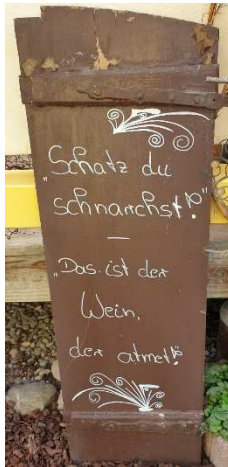 „Schatz du
schnarchst!"
—
„Das ist der
Wein,
der atmet!"